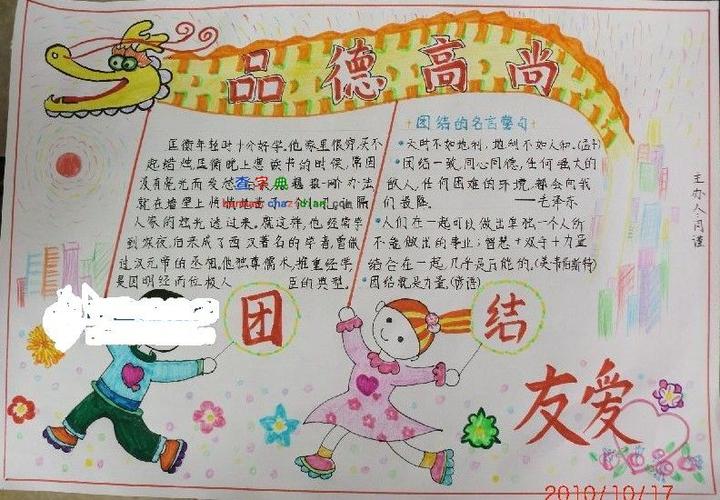 品德高尚
匡衡年轻时十分好学，他家里很穷，买不
起蜡烛，匡衡晚上想读书的时候，常因
没有亮光而发愁。
办法，
就在墙壁上
隔
人家的烛光透过来。就这样，他经常学
到深夜，后来成了西汉著名的学者，曾做
过汉元帝的丞相。他独尊儒术，推重经学，
是因明经而位极人臣的典型。
查字典
chazidian.com
团结的名言警句
•天时不如地利，地利不如人和。(孟子)
•团结一致，同心同德，任何强大的
敌人，任何困难的环境，都会向我
们投降。——毛泽东
•人们在一起可以做出单独一个人所
不能做出的事业；智慧+双手+力量
结合在一起，几乎是万能的。(美·韦伯斯特)
•团结就是力量。(谚语)
主办人：闫谨
团
结
友爱
2010/10/17